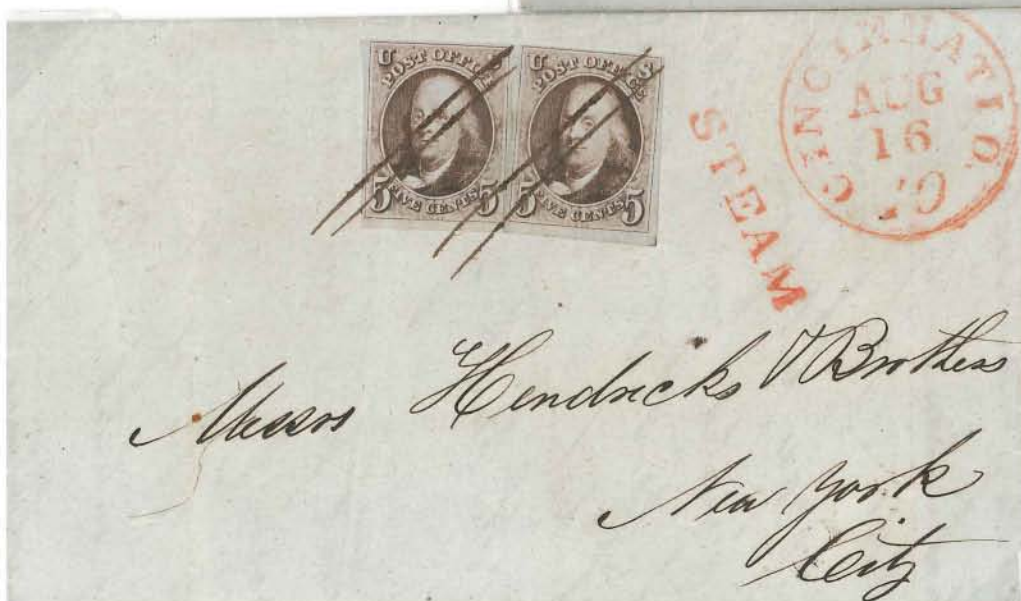 U S
POST OFFICE
FIVE CENTS
5 5
U S
POST OFFICE
FIVE CENTS
5 5
CINCINNATI O.
AUG
16
10
STEAM
Messrs Hendricks & Brothers
New York
City